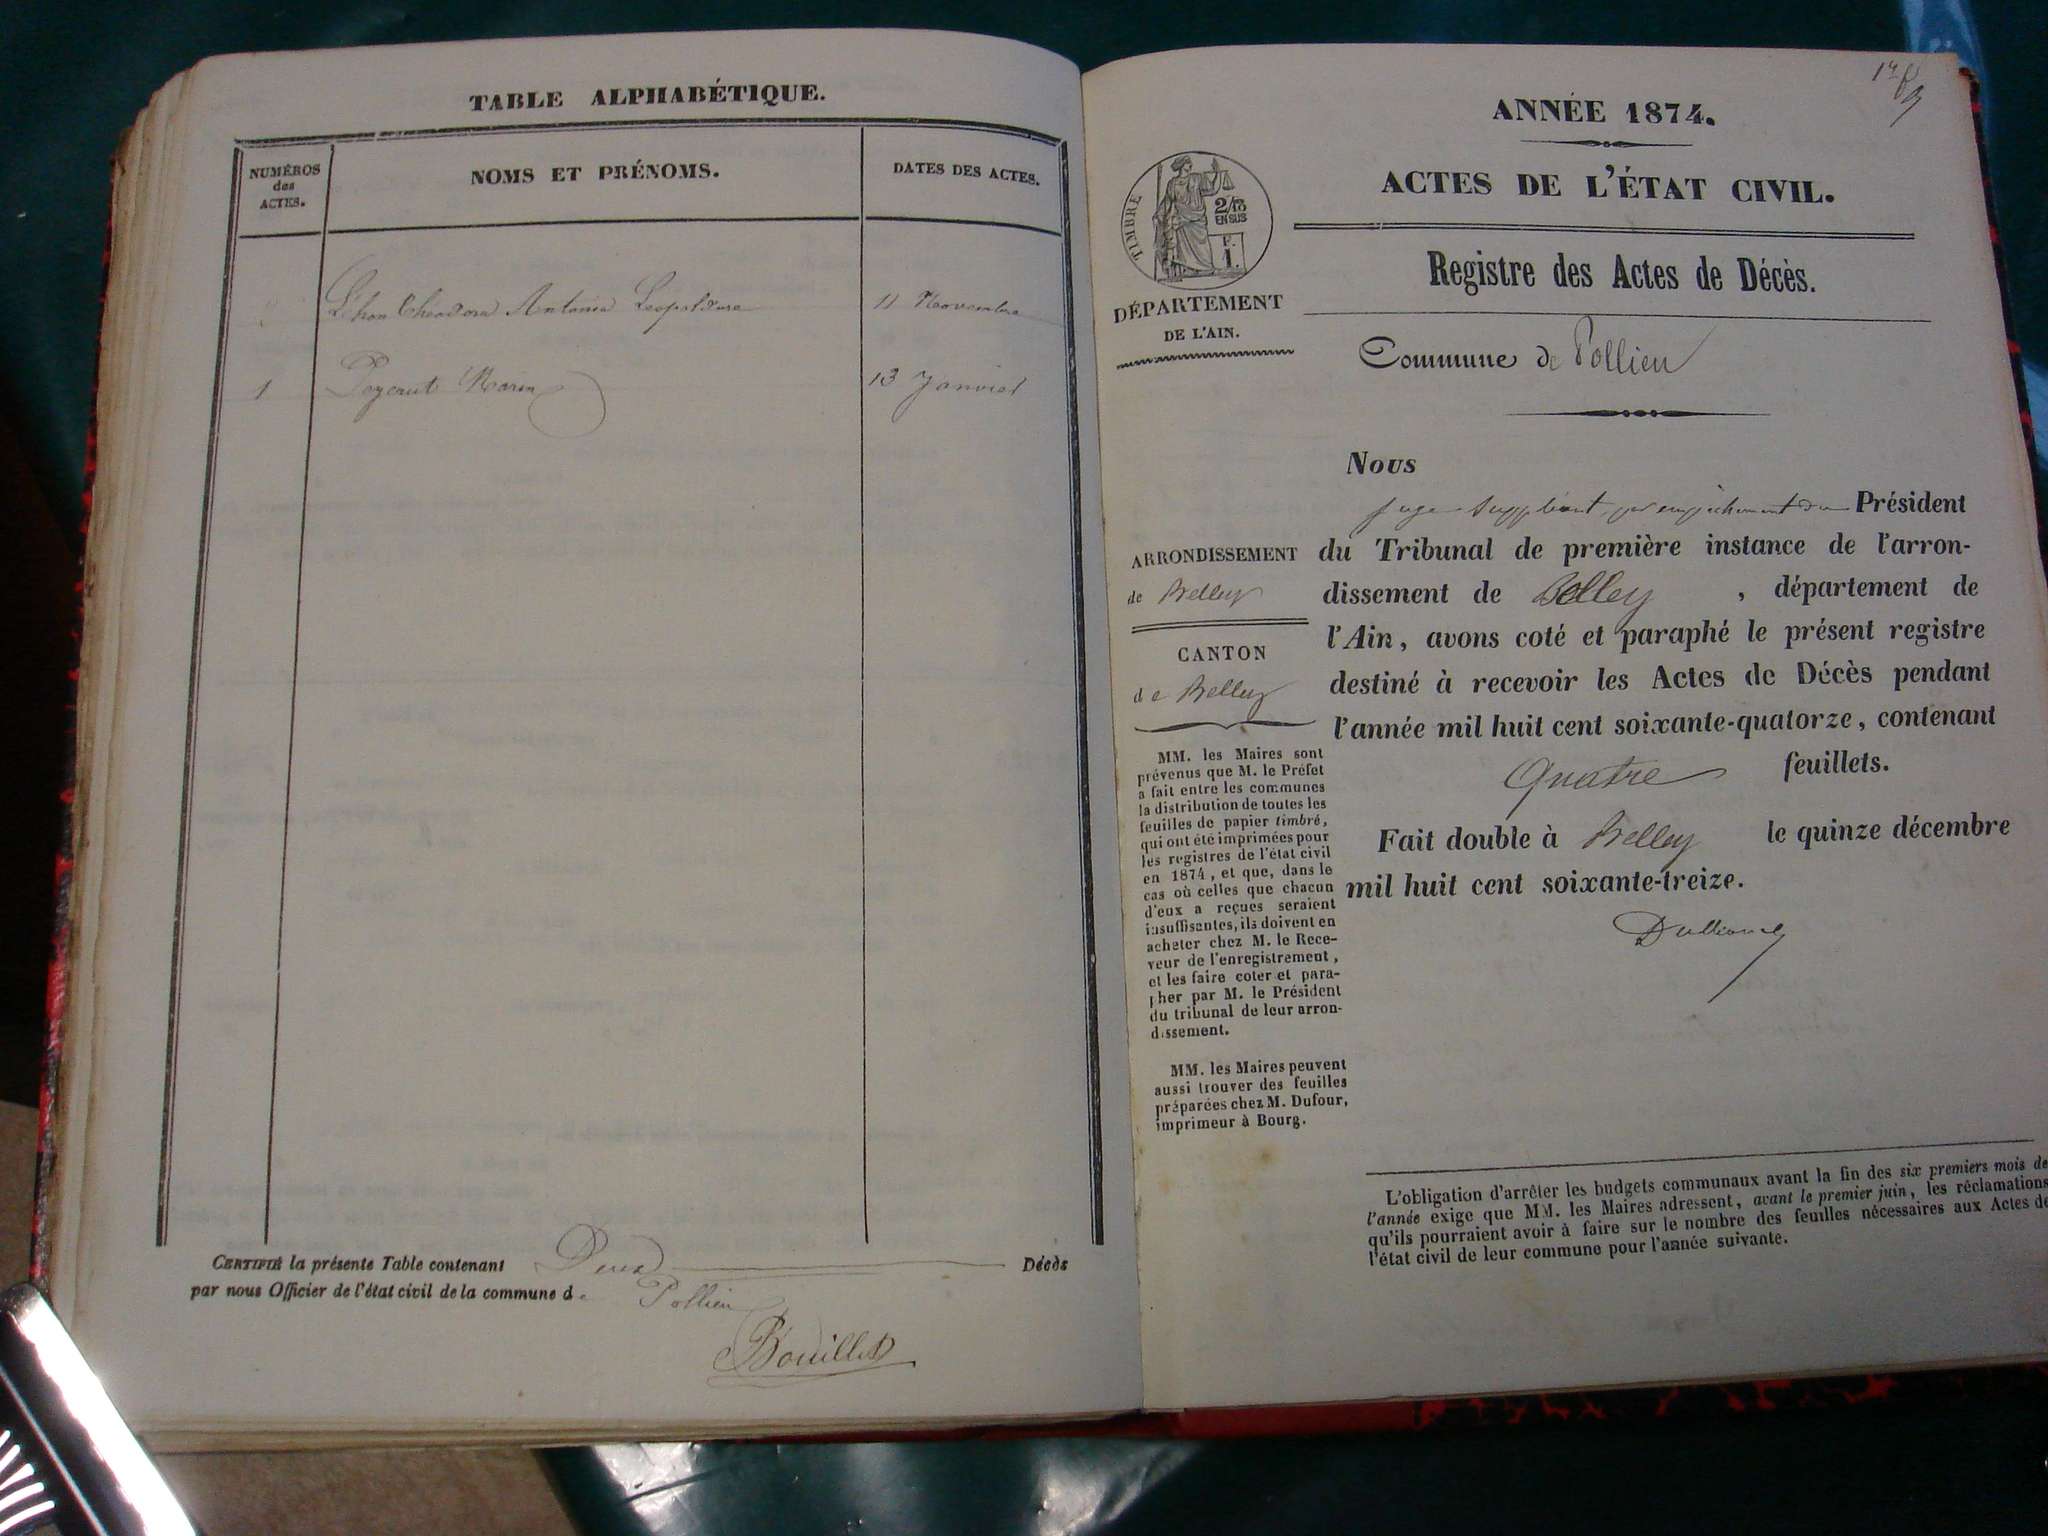 TABLE ALPHABÉTIQUE.
NUMÉROS
des
ACTES.
NOMS ET PRÉNOMS.
DATES DES ACTES.
Antonia
11 Novembre
1
Marin
13 Janvier
CERTIFIÉ la présente Table contenant Deux Décès
par nous Officier de l'état civil de la commune de Pollieu
Bouillet
ANNÉE 1874.
ACTES DE L'ÉTAT CIVIL.
TIMBRE
2/10
EN SUS
F.
1.
Registre des Actes de Décès.
DÉPARTEMENT
DE L'AIN.
Commune de Pollieu
Nous
juge suppléant, par empêchement du Président
du Tribunal de première instance de l'arron-
dissement de Belley , département de
l'Ain, avons coté et paraphé le présent registre
destiné à recevoir les Actes de Décès pendant
l'année mil huit cent soixante-quatorze, contenant
Quatre feuillets.
Fait double à Belley le quinze décembre
mil huit cent soixante-treize.
ARRONDISSEMENT
de Belley
CANTON
de Belley
MM. les Maires sont
prévenus que M. le Préfet
a fait entre les communes
la distribution de toutes les
feuilles de papier timbré,
qui ont été imprimées pour
les registres de l'état civil
en 1874, et que, dans le
cas où celles que chacun
d'eux a reçues seraient
insuffisantes, ils doivent en
acheter chez M. le Rece-
veur de l'enregistrement,
et les faire coter et para-
pher par M. le Président
du tribunal de leur arron-
dissement.
MM. les Maires peuvent
aussi trouver des feuilles
préparées chez M. Dufour,
imprimeur à Bourg.
L'obligation d'arrêter les budgets communaux avant la fin des six premiers mois de
l'année exige que MM. les Maires adressent, avant le premier juin, les réclamations
qu'ils pourraient avoir à faire sur le nombre des feuilles nécessaires aux Actes de
l'état civil de leur commune pour l'année suivante.